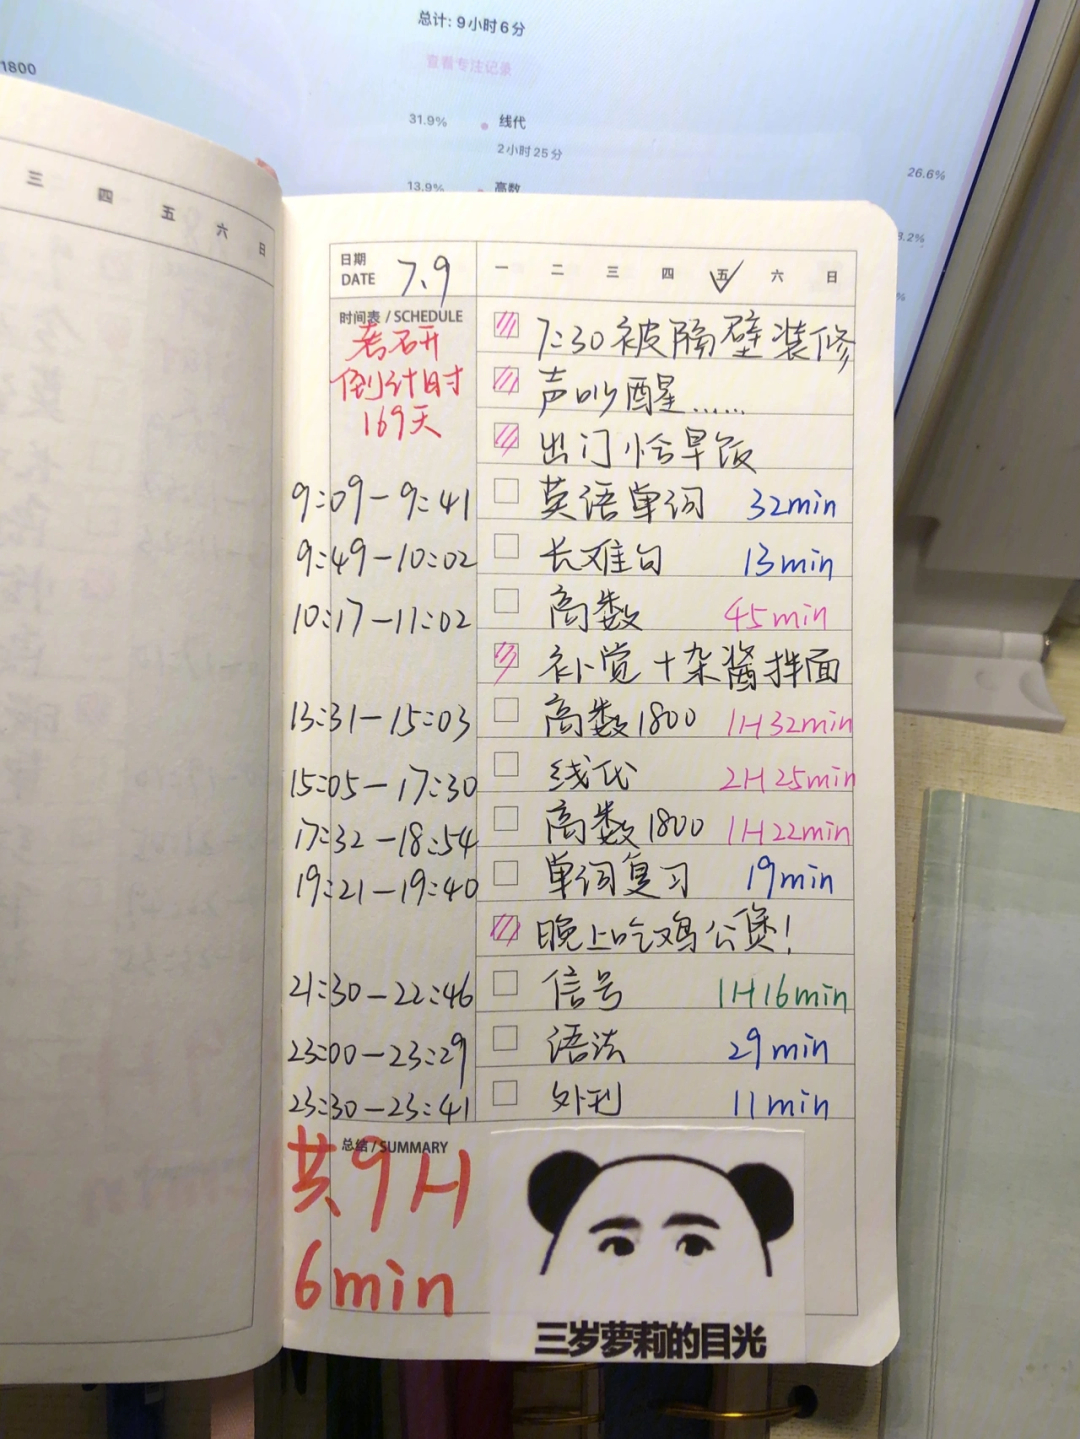 总计: 9小时6分
查看专注记录
1800
31.9% 线代
2小时25分
26.6%
13.9% 高数
三 四 五 六 日
日期
DATE 7、9
一 二 三 四 五 六 日
时间表 / SCHEDULE
考研
倒计时
169天
7:30 被隔壁装修
声吵醒……
出门恰早饭
9:09-9:41 英语单词 32min
9:49-10:02 长难句 13min
10:17-11:02 高数 45min
补觉+杂酱拌面
13:31-15:03 高数1800 1H32min
15:05-17:30 线代 2H25min
17:32-18:54 高数1800 1H22min
19:21-19:40 单词复习 19min
晚上吃鸡公煲!
21:30-22:46 信号 1H16min
23:00-23:29 语法 29min
23:30-23:41 外刊 11min
总结 / SUMMARY
共9H
6min
三岁萝莉的目光